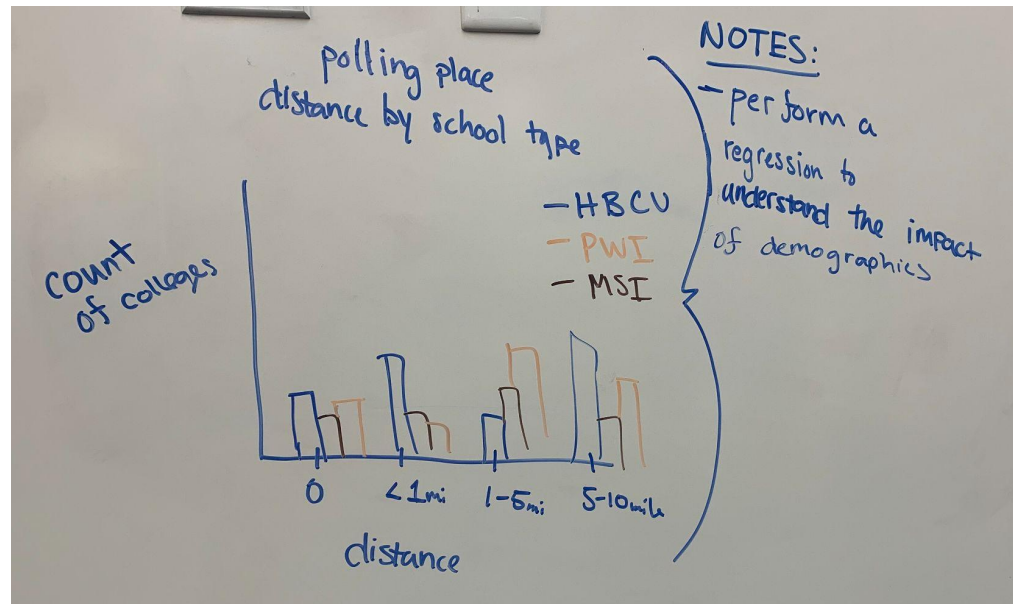 polling place
distance by school type
- HBCU
- PWI
- MSI
count
of colleges
0
<1mi
1-5mi
5-10mile
distance
NOTES:
- perform a
regression to
understand the impact
of demographics